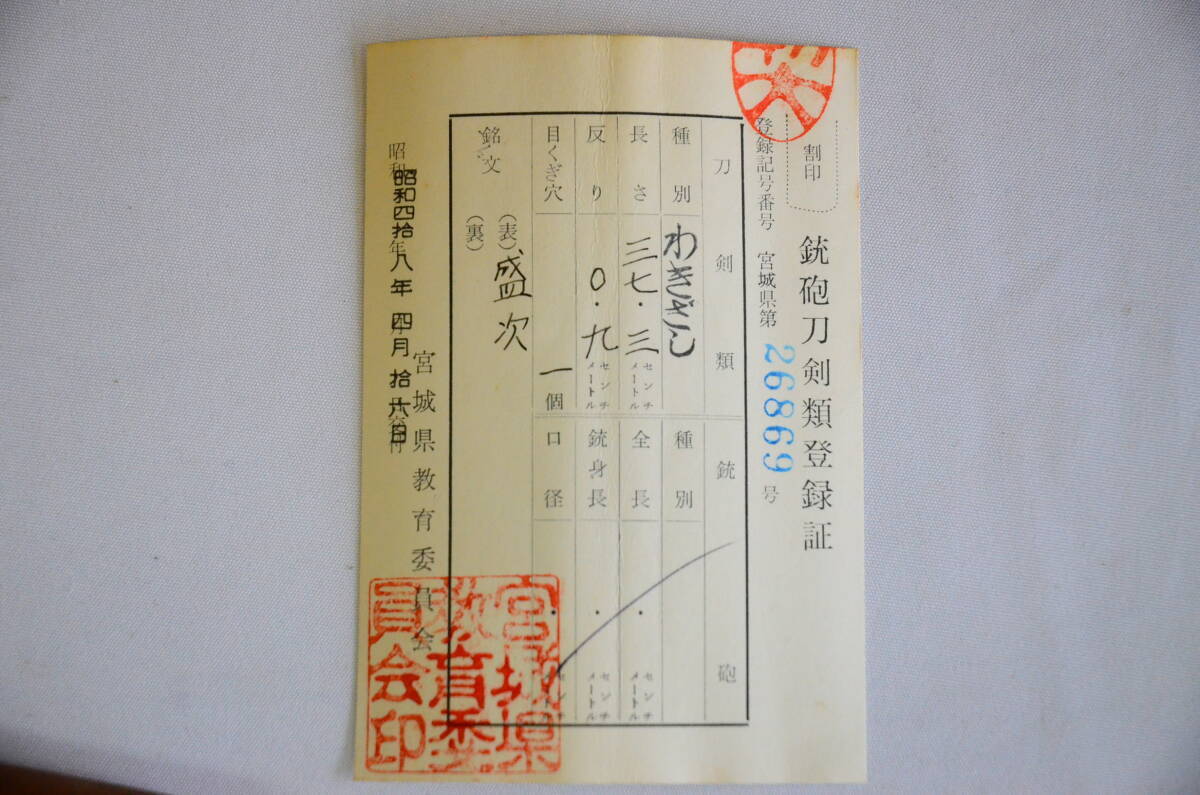 銃砲刀剣類登録証
割印
登録記号番号 宮城県第 26869 号
刀剣類
銃砲
種別 わきざし
種別
長さ 三七.三 センチメートル
全長 . センチメートル
反り 〇.九 センチメートル
銃身長 . センチメートル
目くぎ穴 一個
口径 . センチメートル
銘文 (表) 盛次
(裏)
昭和四拾八年四月拾六日
宮城県教育委員会
宮城県
教育委
員会印